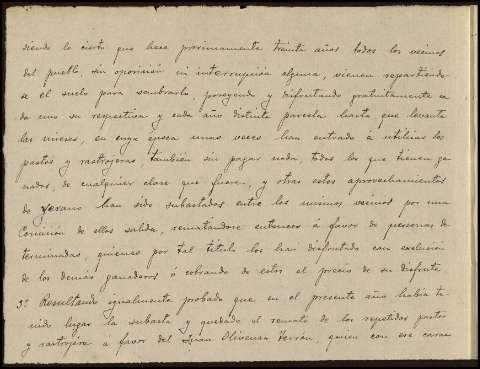 siendo lo cierto que hace proximamente treinta años todos los vecinos
del pueblo, sin oposición ni interrupción alguna, vienen repartiendo-
se el suelo para sembrarlo, poseyendo y disfrutando gratuitamente ca
da uno su respectiva y cada año distinta parcela hasta que levanta
las mieses, en cuya época unas veces han entrado á utilizar los
pastos y rastrojeras, también sin pagar nada, todos los que tienen ga
nados, de cualquier clase que fuere, y otras estos aprovechamientos
de verano han sido subastados entre los mismos vecinos por una
Comisión de ellos salida, rematándose entonces á favor de personas de
terminadas, quienes por tal título los han disfrutado con exclusión
de los demás ganaderos ó cobrando de estos el precio de su disfrute
3º Resultando igualmente probado que en el presente año había te-
nido lugar la subasta y quedado el remate de los repetidos pastos
y rastrojera a favor del Juan Olivenza Terrón, quien con ese carac